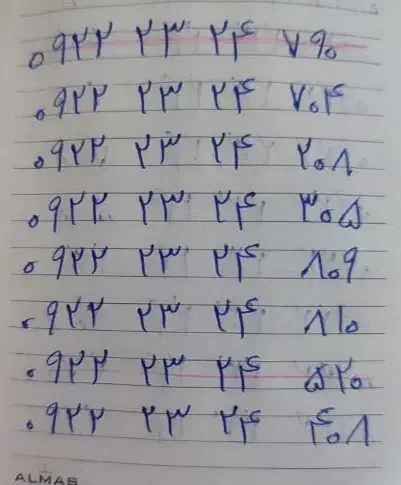 ۰۹۲۲ ۲۳ ۲۴ ۷۹۰
۰۹۲۲ ۲۳ ۲۴ ۷۰۴
۰۹۲۲ ۲۳ ۲۴ ۲۰۸
۰۹۲۲ ۲۳ ۲۴ ۳۰۵
۰۹۲۲ ۲۳ ۲۴ ۸۰۹
۰۹۲۲ ۲۳ ۲۴ ۸۱۰
۰۹۲۲ ۲۳ ۲۴ ۵۲۰
۰۹۲۲ ۲۳ ۲۴ ۴۰۸
ALMAS